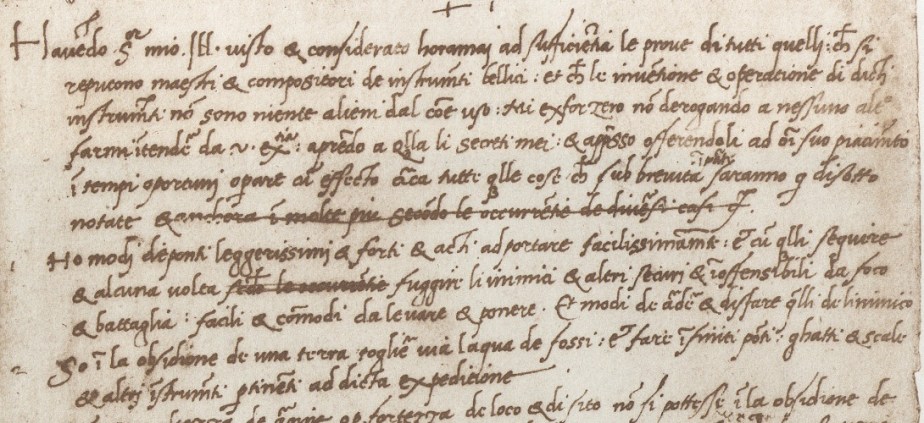 Havēdo S.or mio Ill. visto & considerato horamai ad sufficiētia le prove di tutti quelli: ch̄ si
reputono maestri & compositori de instrumēti bellici: et ch̄ le inventione & operatione di dicti
instrumēti nō sono niente alieni dal cōe uso: Mi exforzero nō derogando a nessuno alt°
farmi ītendē da .v. ex.tia: aprēdo a q̄lla li secreti mei: & ap̄sso offerendoli ad oī suo piacimēto
ī tempi oportuni operare cū effecto circa tutte q̄lle cose ch̄ sub brevita ī parte saranno q̄ disotto
notate & anchora ī molte piu secōdo le occurrentie de divēsi casi
Ho modi de ponti leggerissimi & forti & acti ad portare facilissimamēte: et cū q̄lli seguire
& alcuna volta secōdo le occurrentie fuggire li inimici & altri securi & īoffensibili da foco
& battaglia: facili & cōmodi da levare & ponere. Et modi de ardē & disfare q̄lli de linimico
So ī la obsidione de una terra togliē via laqua de fossi: et fare īfiniti pōti: ghatti & scale
& altri īstrumēti ptinēti ad dicta expeditione
de loco & di sito nō si pottesse ī la obsidione de